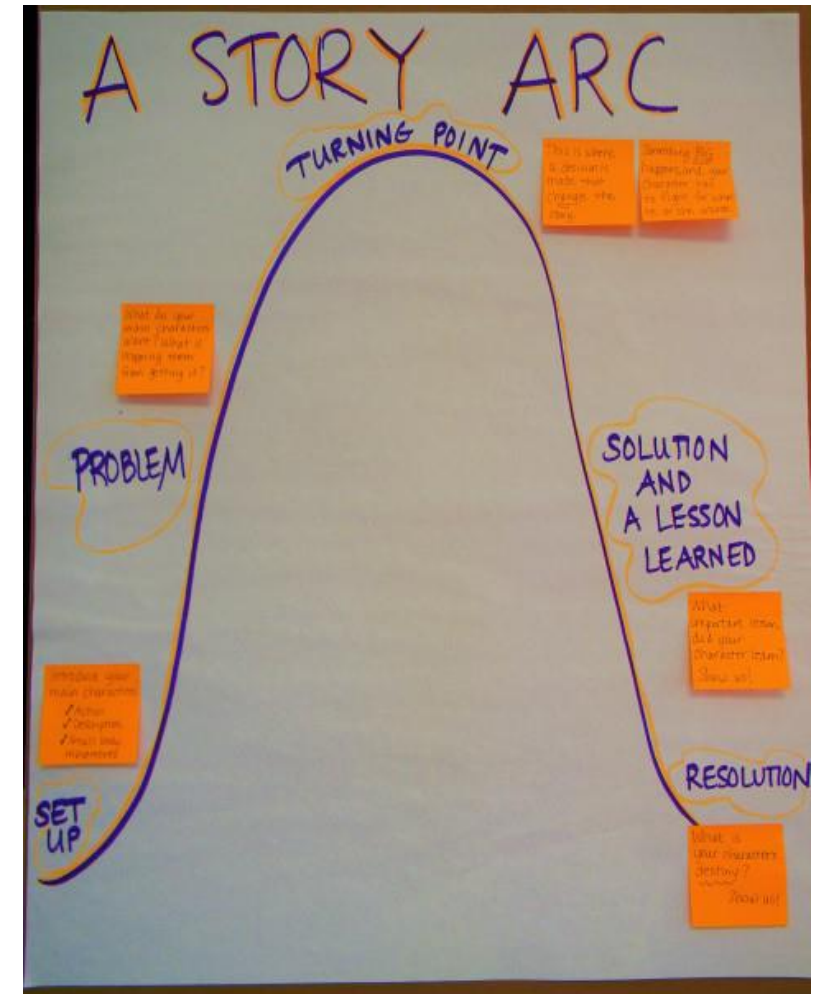 A STORY ARC
TURNING POINT
This is where
a decision is
made that
changes the
story
Something BIG
happens, and your
character has
to fight for what
he or she wants!
What do your
main characters
want? What is
stopping them
from getting it?
PROBLEM
SOLUTION
AND
A LESSON
LEARNED
What
important lesson
did your
character learn?
Show us!
Introduce your
main characters
✓ Action
✓ Description
✓ Small body
movements
SET
UP
RESOLUTION
What is
your characters
destiny?
Show us!